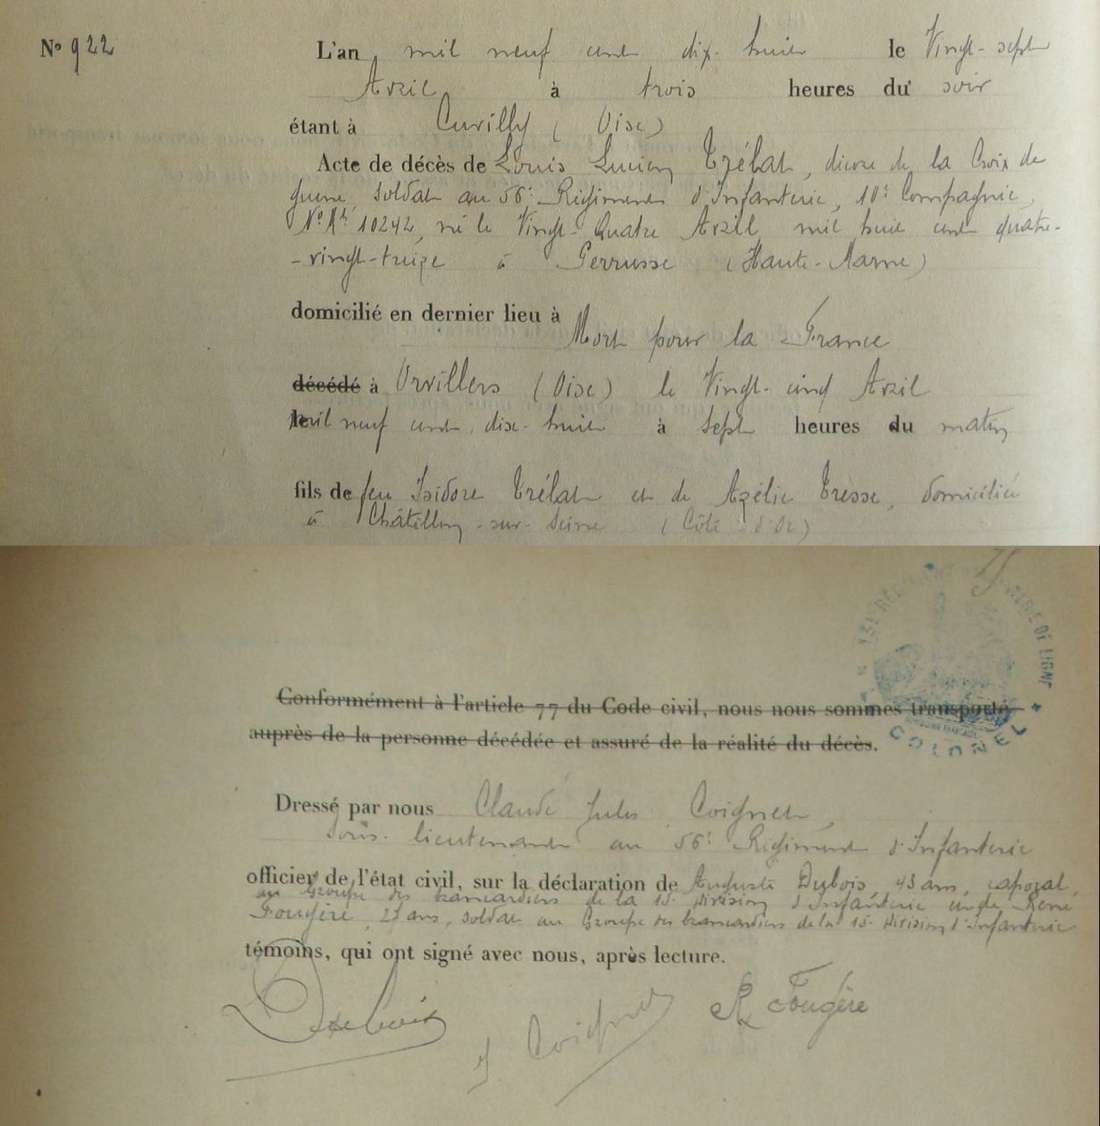 N° 922
L'an mil neuf cent dix-huit le Vingt-sept
Avril à trois heures du soir
étant à Cuvilly (Oise)
Acte de décès de Louis Lucien Trélat, décoré de la Croix de
guerre, soldat au 56e Régiment d'Infanterie, 10e Compagnie,
N° Mle 10242, né le Vingt-Quatre Avril mil huit cent quatre-
-vingt-treize à Perrusse (Haute-Marne)
domicilié en dernier lieu à
Mort pour la France
décédé à Orvillers (Oise) le Vingt-cinq Avril
mil neuf cent dix-huit à sept heures du matin
fils de feu Isidore Trélat et de Azélie Tresse, domiciliée
à Châtillon-sur-Seine (Côte-d'Or)
DE LIGNE
COLONEL
Conformément à l'article 77 du Code civil, nous nous sommes transporté
auprès de la personne décédée et assuré de la réalité du décès.
Dressé par nous Claude Jules Coignet,
Sous-lieutenant au 56e Régiment d'Infanterie
officier de l'état civil, sur la déclaration de Auguste Dubois, 43 ans, caporal,
au Groupe des brancardiers de la 15e Division d'Infanterie et de René
Fougère, 21 ans, soldat au Groupe des brancardiers de la 15e Division d'Infanterie
témoins, qui ont signé avec nous, après lecture.
Dubois
J Coignet
R Fougère